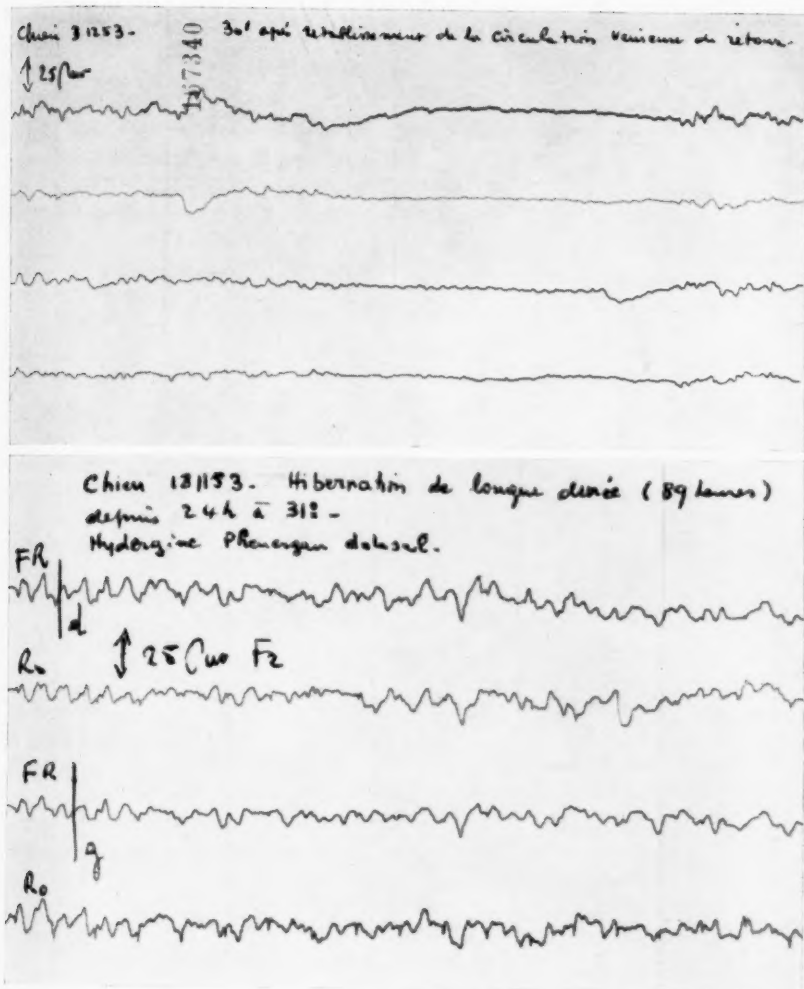 Chien 31253 - 30' après rétablissement de la circulation veineuse de retour.
167340
25
Chien 181153 - Hibernation de longue durée (89 heures)
depuis 24h à 31° -
Hydergine Phenergan dolosal.
FR
d
25 F2
Ro
FR
g
Ro